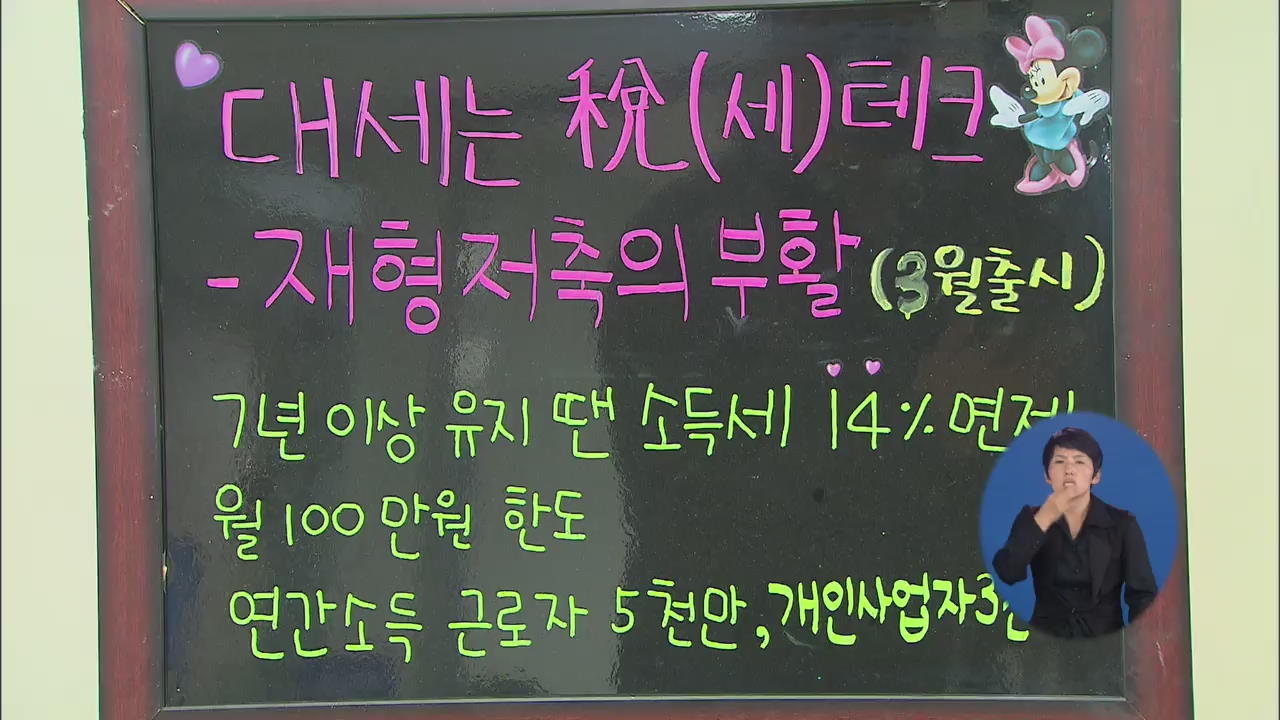 대세는 稅(세)테크
- 재형저축의 부활 (3월출시)
7년 이상 유지 땐 소득세 14% 면제
월 100만원 한도
연간소득 근로자 5천만, 개인사업자3천